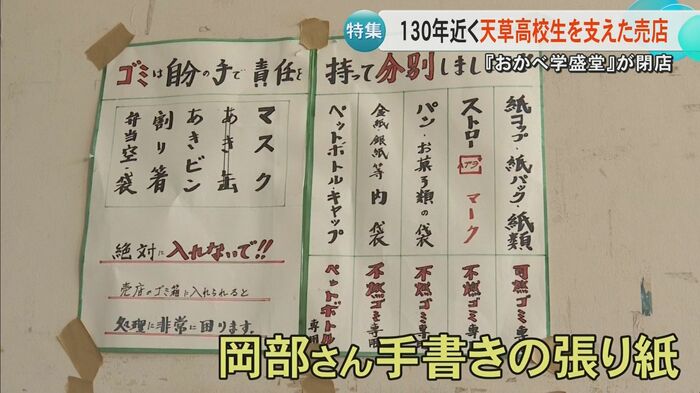 特集
130年近く天草高校生を支えた売店
『おかべ学盛堂』が閉店
ゴミは自分の手で責任を
持って分別しまし
マスク
あき缶
あきビン
割り箸
弁当空・袋
絶対に入れないで!!
売店のゴミ箱に入れられると
処理に非常に困ります。
紙コップ・紙パック・紙類
可燃ゴミ専用
ストロー マーク
不燃ゴミ専用
パン・お菓子類の袋
不燃ゴミ専用
金紙銀紙等内袋
不燃ゴミ専用
ペットボトル・キャップ
ペットボトル専用
岡部さん手書きの張り紙